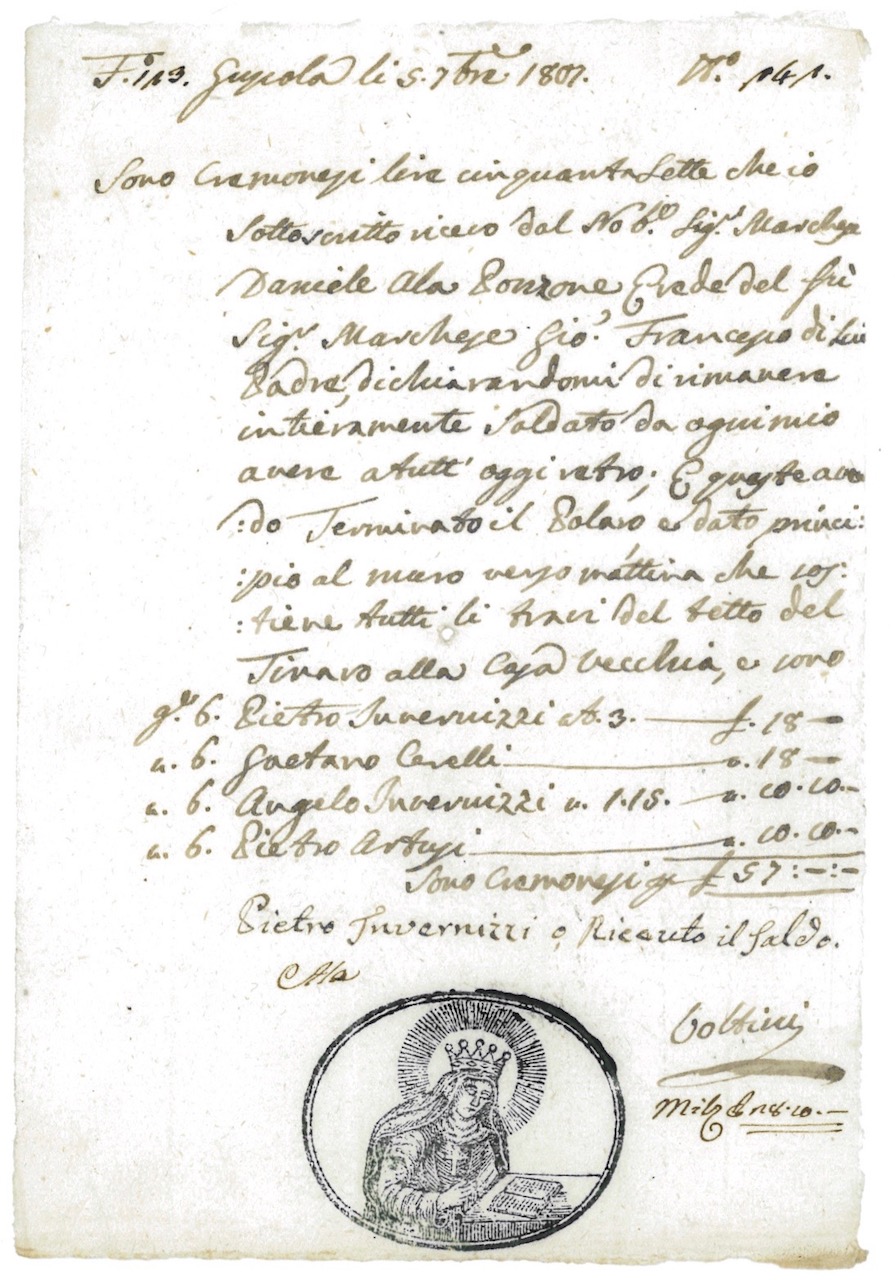 F.º 113. Gussola li 5. 7bre 1807. N.º 141.
Sono Cremonesi lire cinquanta sette che io
sottoscritto ricevo dal Nob.e Sig.r Marchese
Daniele Ala Ponzone Erede del fù
Sig.r Marchese Gio. Francesco di lui
Padre, dichiarandomi di rimanere
intieramente saldato da ogni mio
avere a tutt' oggi retro; E queste aven
:do Terminato il Polaro e dato princi:
:pio al muro verso mattina che sos:
:tiene tutti li travi del tetto del
Tinaro alla Casa Vecchia, e sono
g.te 6. Pietro Invernizzi at. 3. — £. 18 —
u. 6. Gaetano Cerelli — u. 18 —
u. 6. Angelo Invernizzi u. 1.15. — u. 10.10.-
u. 6. Pietro Artusi — u. 10.10.-
Sono Cremonesi £ 57:—:—
Pietro Invernizzi o Riceuto il saldo.
Ala
Bottini